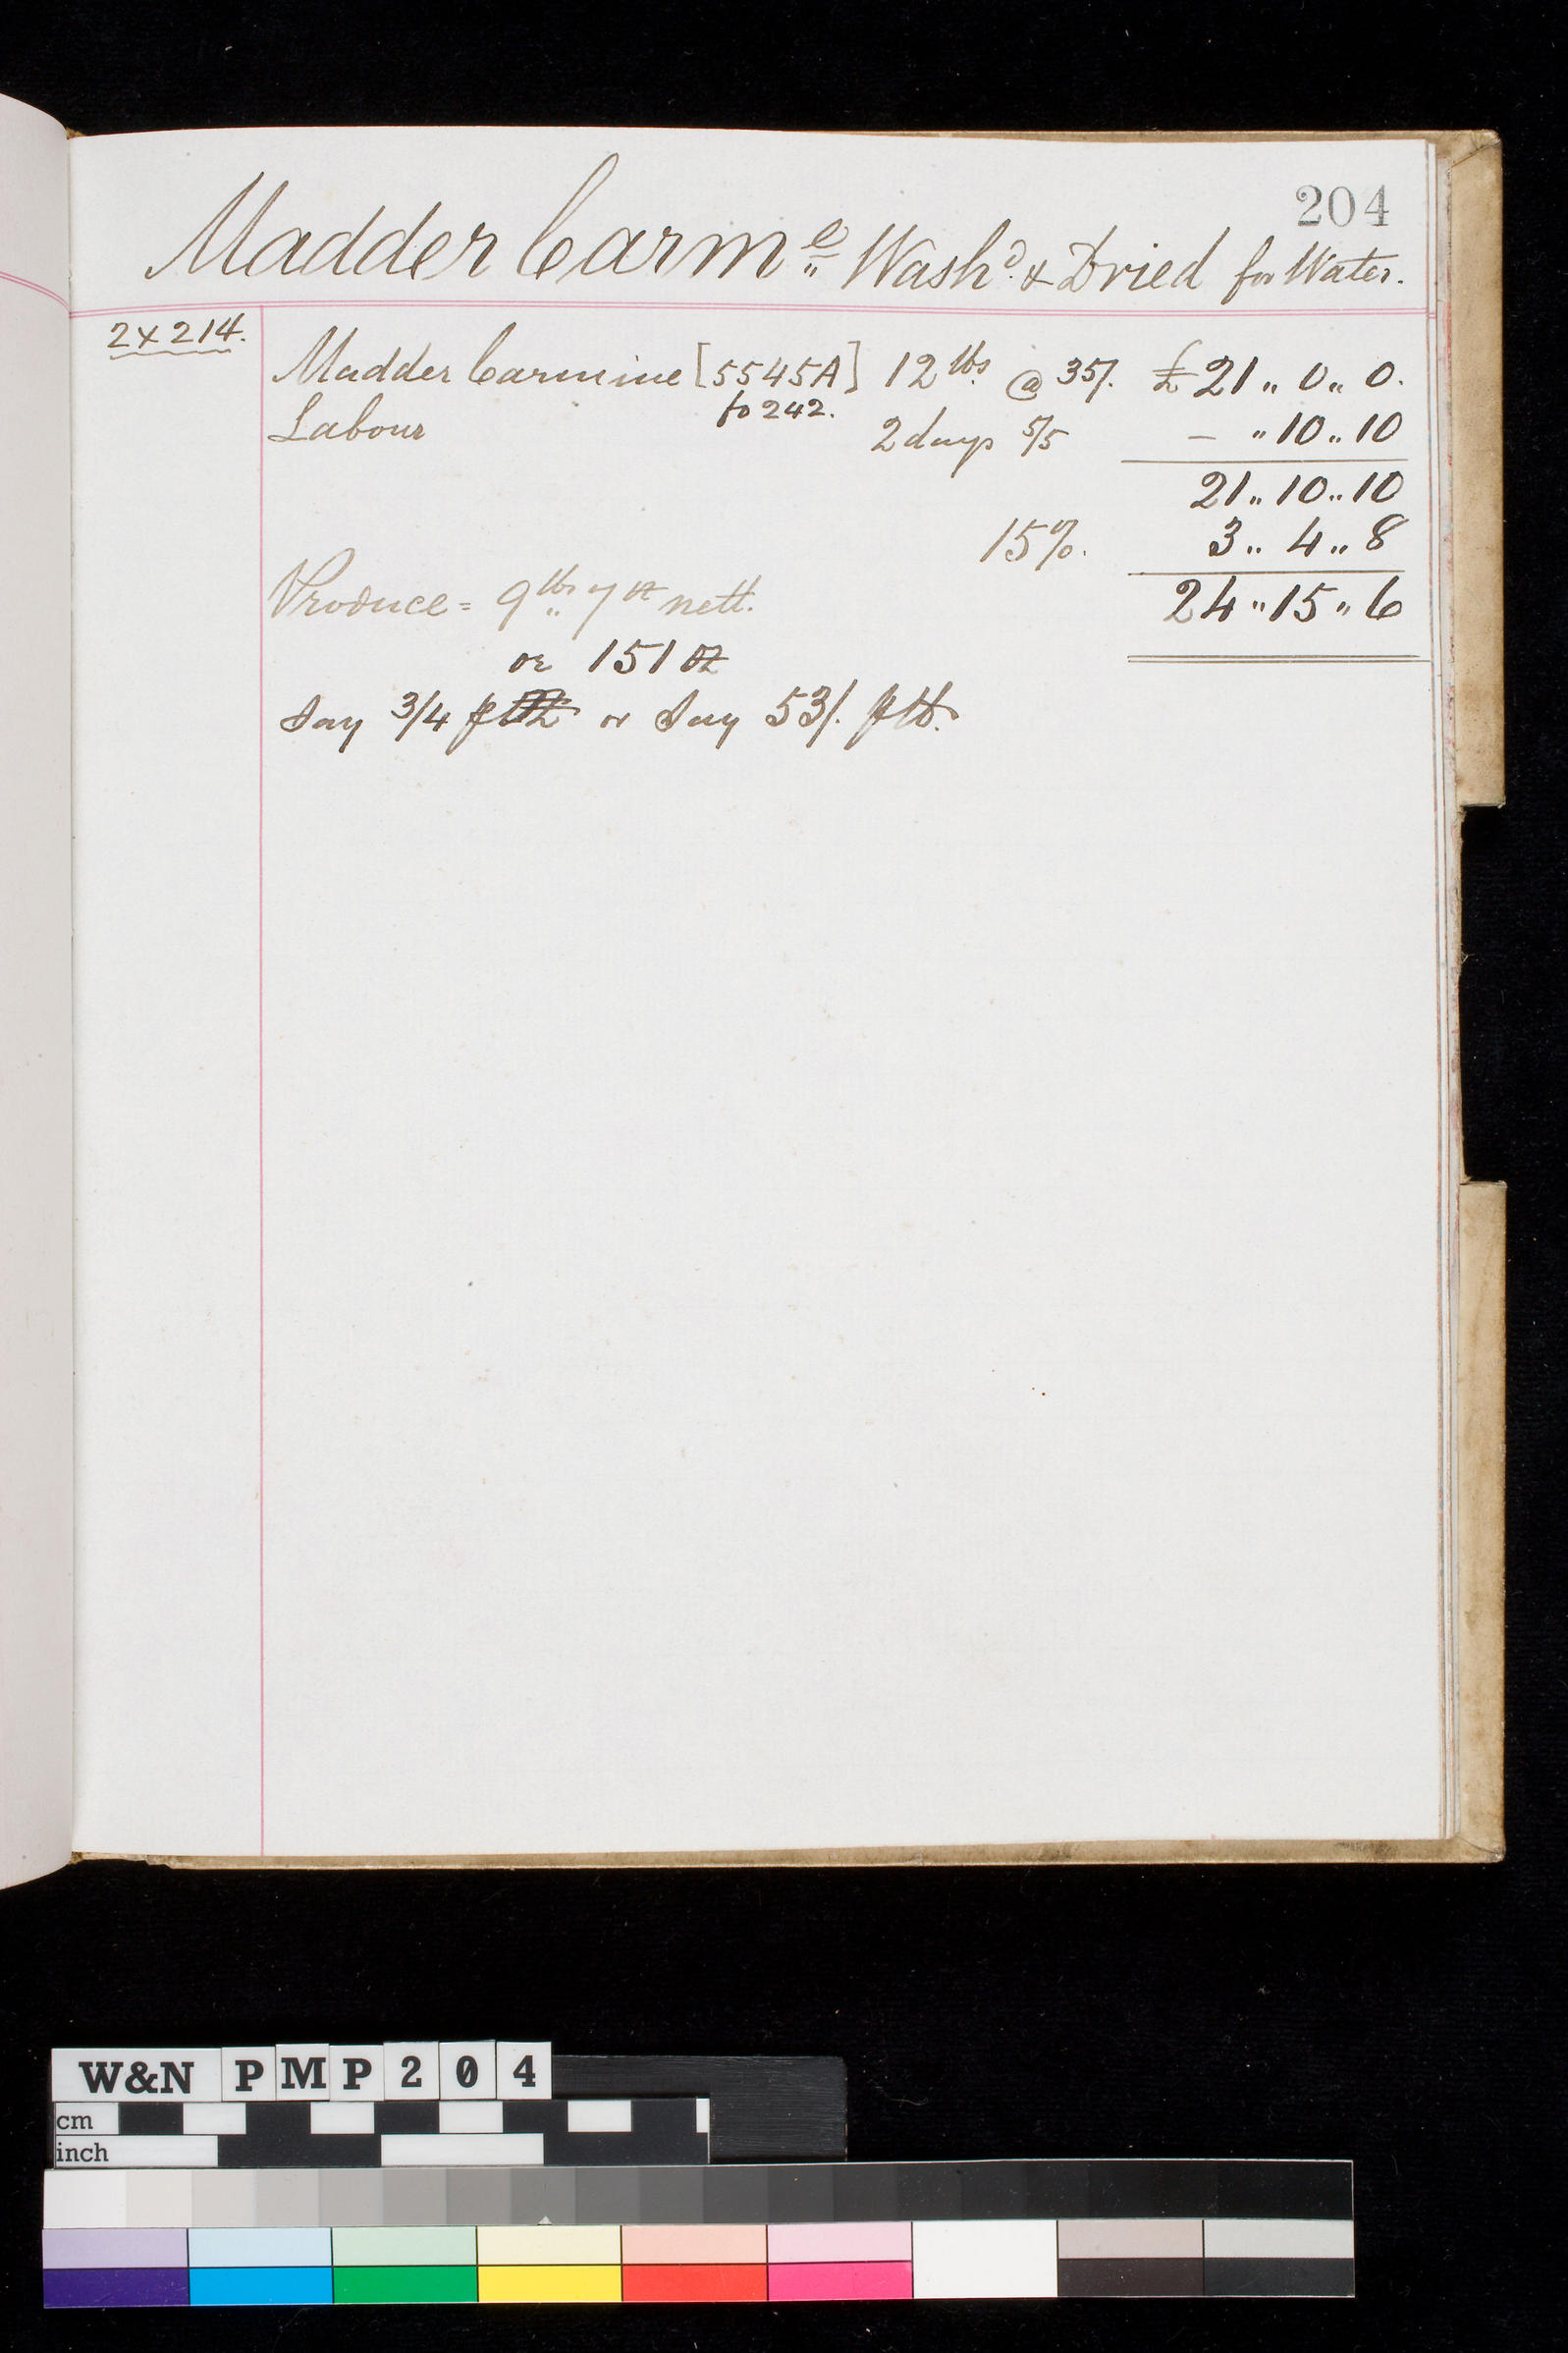 204
Madder Carm<sup>e</sup> Wash<sup>d</sup>. & Dried for Water.
2 x 214.
Madder Carmine [5545A] 12 lbs. @ 35/. £21 " 0 " 0.
fo 242.
Labour 2 days 5/5 – " 10 " 10
21 " 10 " 10
15%. 3 " 4 " 8
24 " 15 " 6
Produce = 9 lbs " 7 oz nett.
or 151 oz
Say 3/4 p or Say 53/. p lb.
W&N PMP204
cm
inch